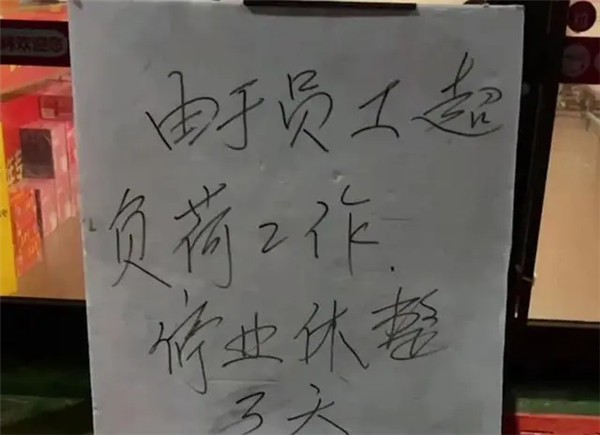 由于员工超
负荷工作.
停业休整
3天